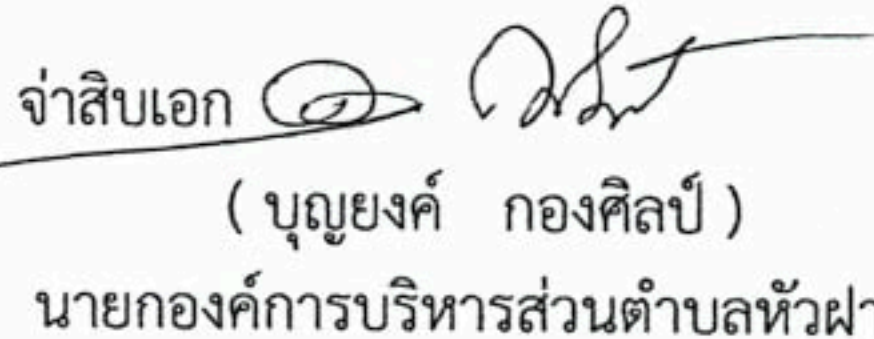 จ่าสิบเอก
( บุญยงค์ กองศิลป์ )
นายกองค์การบริหารส่วนตำบลหัวฝา